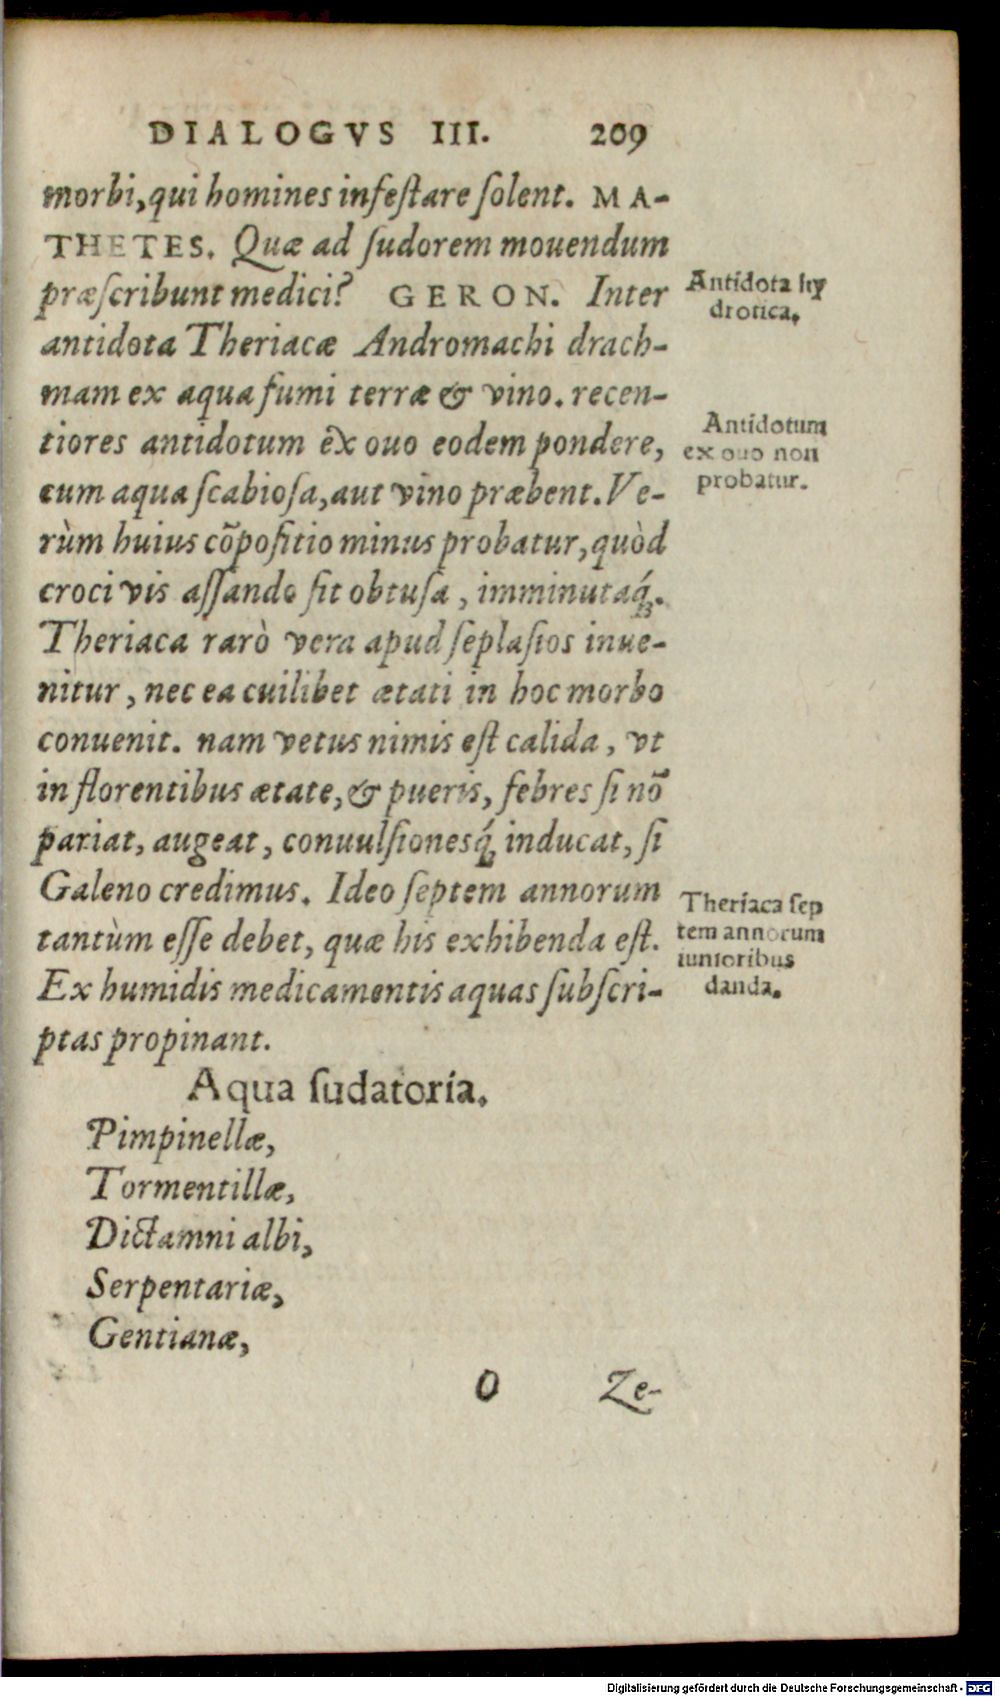 DIALOGVS III. 209
morbi, qui homines infeſtare ſolent. MA-
THETES. Quæ ad ſudorem mouendum
præſcribunt medici? GERON. Inter
antidota Theriacæ Andromachi drach-
mam ex aqua fumi terræ & vino. recen-
tiores antidotum ex ouo eodem pondere,
cum aqua ſcabioſa, aut vino præbent. Ve-
rùm huius cõpoſitio minus probatur, quòd
croci vis aſſando ſit obtuſa, imminutaq́;.
Theriaca rarò vera apud ſeplaſios inue-
nitur, nec ea cuilibet ætati in hoc morbo
conuenit. nam vetus nimis eſt calida, vt
in florentibus ætate, & pueris, febres ſi nõ
pariat, augeat, conuulſionesq́; inducat, ſi
Galeno credimus. Ideo ſeptem annorum
tantùm eſſe debet, quæ his exhibenda eſt.
Ex humidis medicamentis aquas ſubſcri-
ptas propinant.
Aqua ſudatoria.
Pimpinellæ,
Tormentillæ,
Dictamni albi,
Serpentariæ,
Gentianæ,
O Ze-
Antidota hy
drotica.
Antidotum
ex ouo non
probatur.
Theriaca ſep
tem annorum
iunioribus
danda.
Digitalisierung gefördert durch die Deutsche Forschungsgemeinschaft - DFG